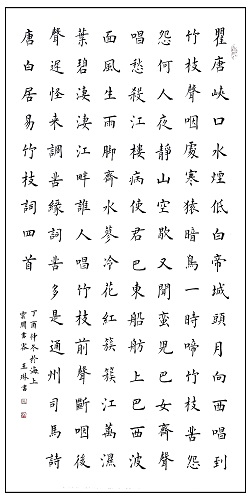 瞿唐峽口水煙低白帝城頭月向西唱到
竹枝聲咽處寒猿暗鳥一時啼竹枝苦怨
怨何人夜靜山空歇又聞蠻兒巴女齊聲
唱愁殺江樓病使君巴東船舫上巴西波
面風生雨腳齊水蓼冷花紅簇簇江萬濕
葉碧淒淒江畔誰人唱竹枝前聲斷咽後
聲遲怪來調苦緣詞苦多是通州司馬詩
唐白居易竹枝詞四首
丁酉仲冬於海上
雲間書 王琳書